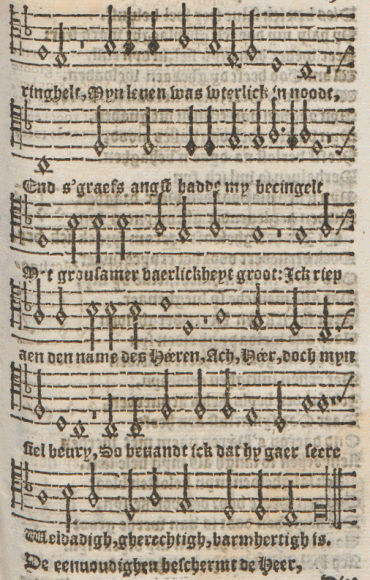 ringhelt, Myn leven was uterlick in noodt,
End s'graefs angst hadde my becingelt
Met grousamer vaerlickheyt groot: Ick riep
aen den name des Hæren, Ach, Hær, doch myn
siel bevry, So bevandt ick dat hy gaer seere
Weldadigh, gherechtigh, barmhertigh is.
De eenvoudighen beschermt de Heer,